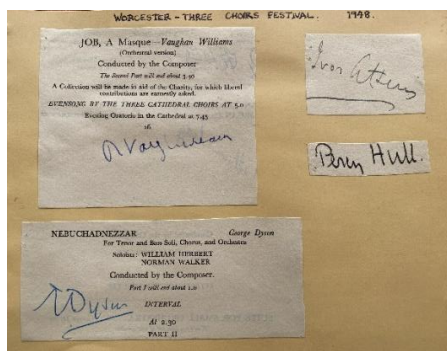 WORCESTER - THREE CHOIRS FESTIVAL. 1948.
JOB, A Masque—Vaughan Williams
(Orchestral version)
Conducted by the Composer
The Second Part will end about 3.50
A Collection will be made in aid of the Charity, for which liberal
contributions are earnestly asked.
EVENSONG BY THE THREE CATHEDRAL CHOIRS AT 5.0
Evening Oratorio in the Cathedral at 7.45
16
R Vaughan Williams
Ivor Atkins
Percy Hull.
NEBUCHADNEZZAR George Dyson
For Tenor and Bass Soli, Chorus, and Orchestra
Soloists: WILLIAM HERBERT
NORMAN WALKER
Conducted by the Composer.
Part I will end about 1.0
GDyson
INTERVAL
At 2.30
PART II